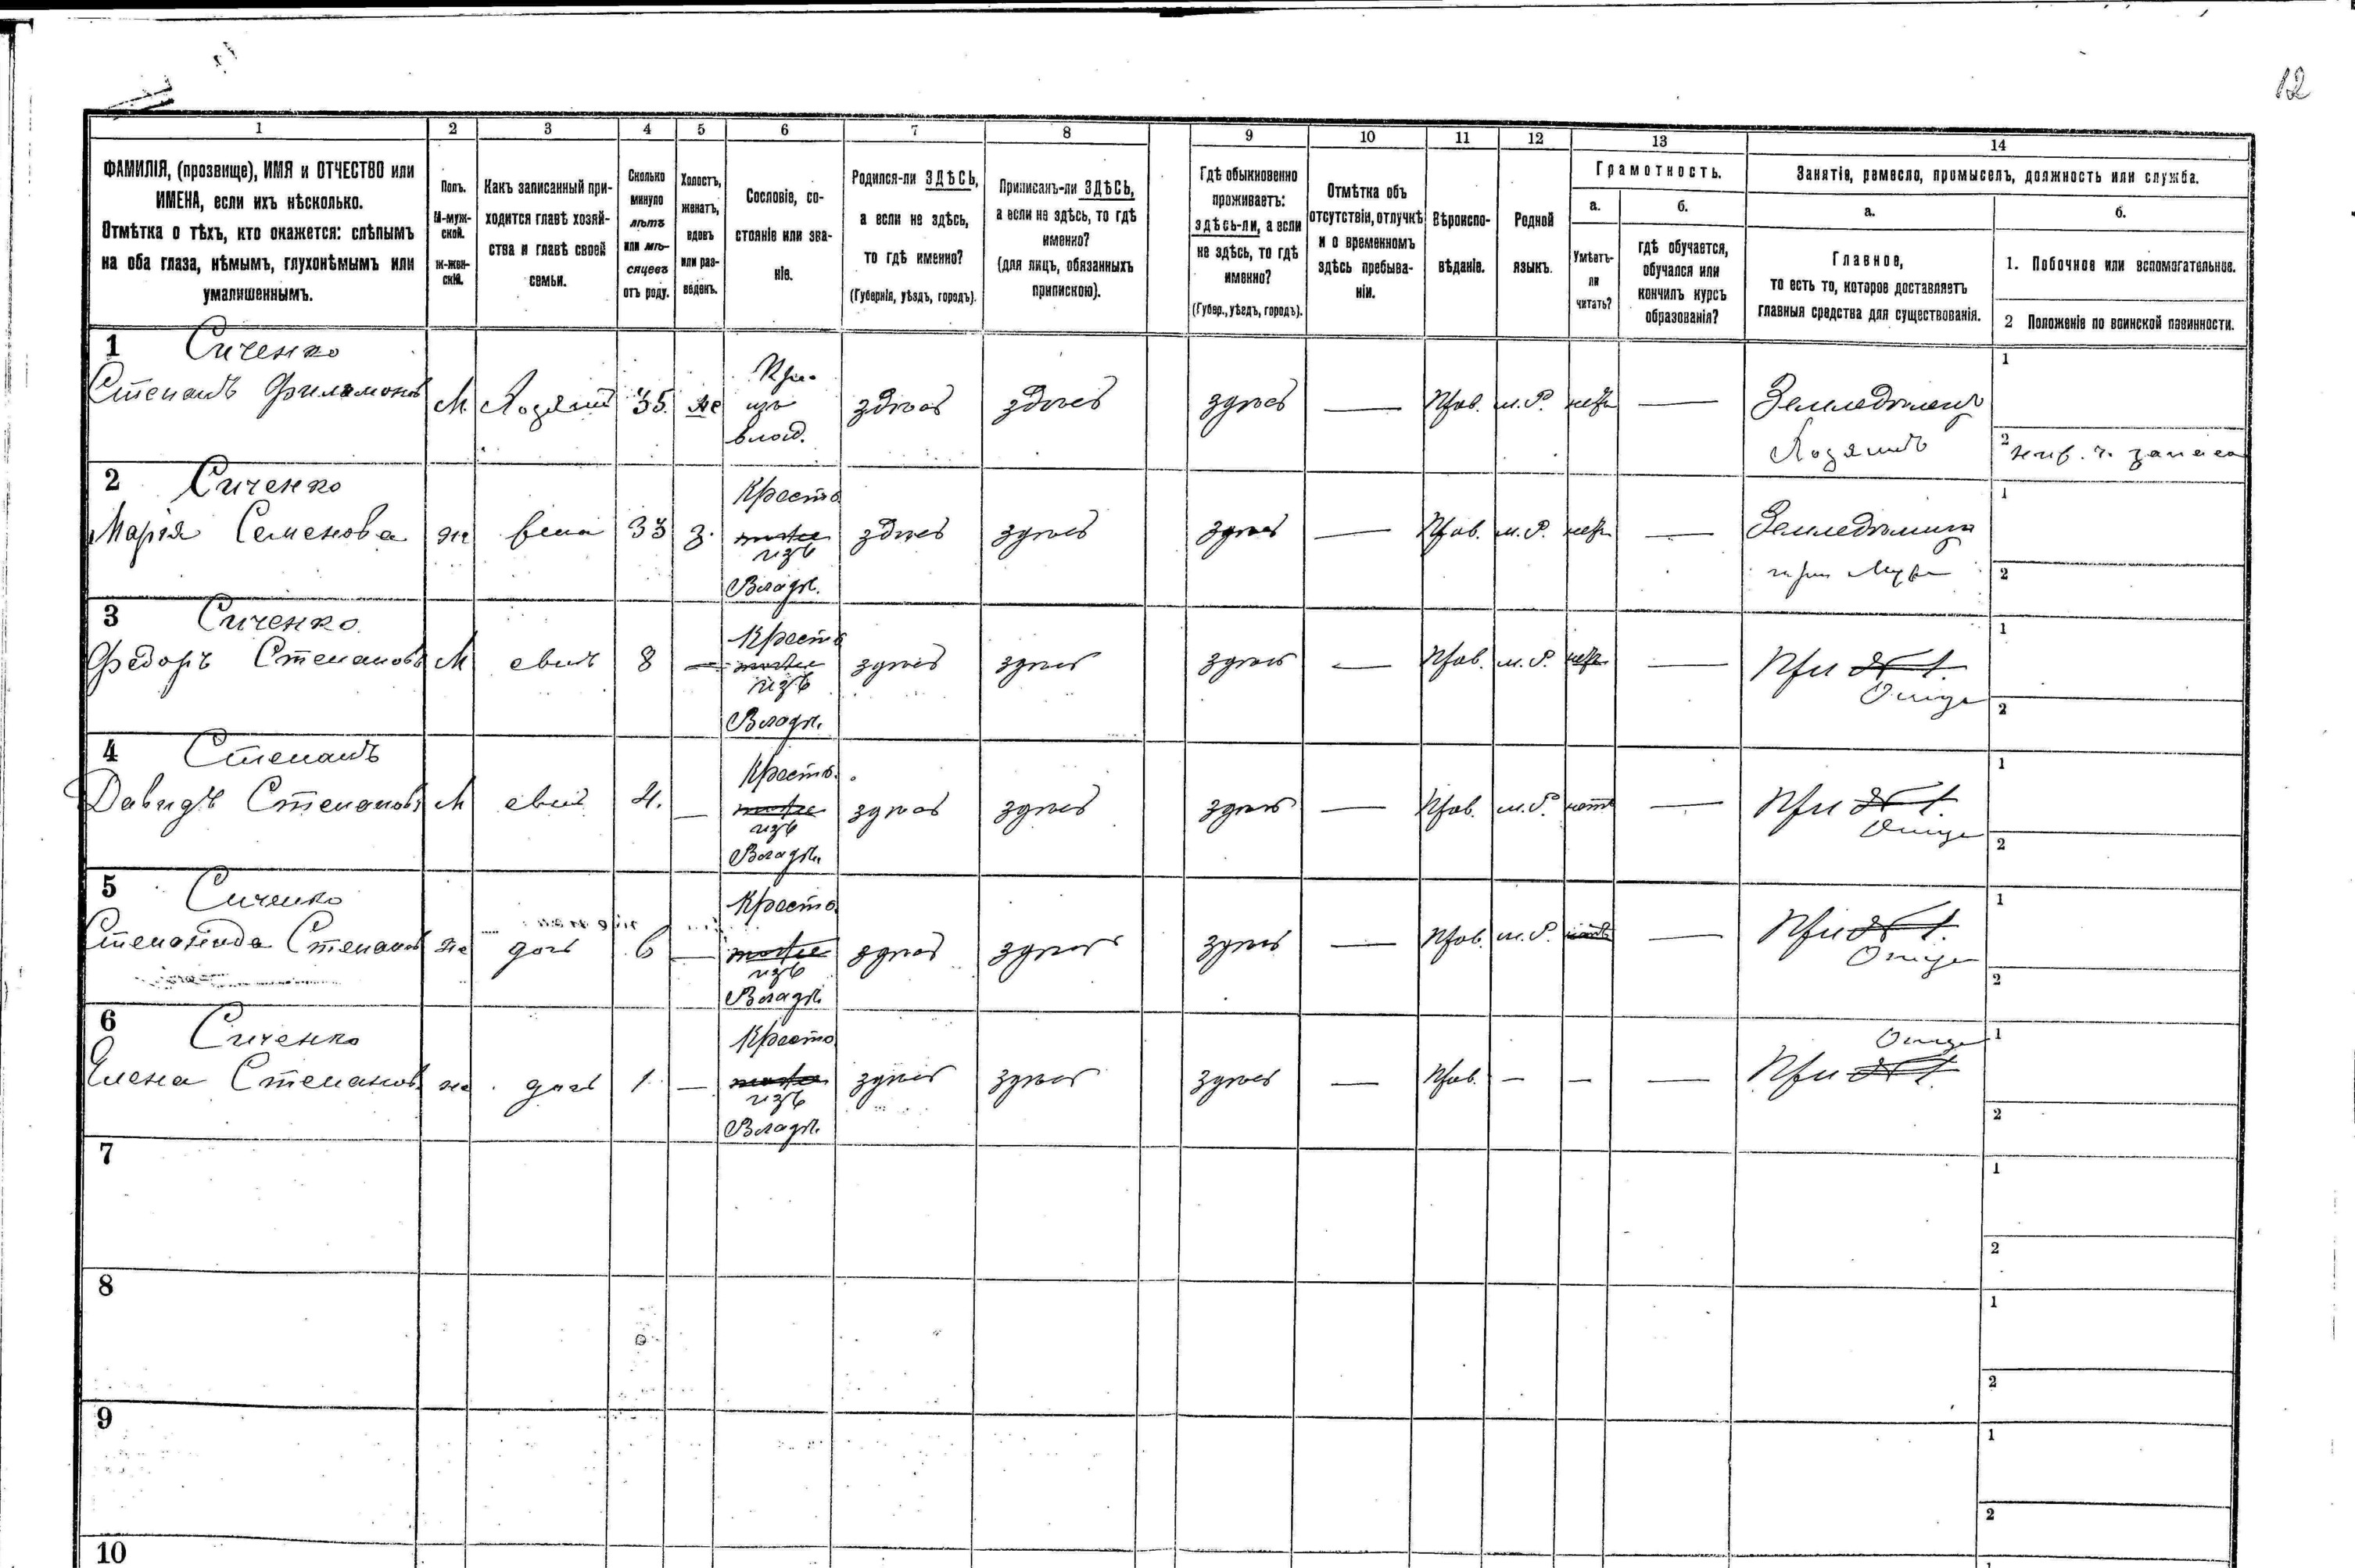 12
1 2 3 4 5 6 7 8 9 10 11 12 13 14
ФАМИЛІЯ, (прозвище), ИМЯ и ОТЧЕСТВО или
ИМЕНА, если ихъ нѣсколько.
Отмѣтка о тѣхъ, кто окажется: слѣпымъ
на оба глаза, нѣмымъ, глухонѣмымъ или
умалишеннымъ.
Полъ.
М-муж-
ской.
Ж-жен-
скій.
Какъ записанный при-
ходится главѣ хозяй-
ства и главѣ своей
семьи.
Сколько
минуло
лѣтъ
или мѣ-
сяцевъ
отъ роду.
Холостъ,
женатъ,
вдовъ
или раз-
веденъ.
Сословіе, со-
стояніе или зва-
ніе.
Родился-ли ЗДѢСЬ,
а если не здѣсь,
то гдѣ именно?
(Губернія, уѣздъ, городъ).
Приписанъ-ли ЗДѢСЬ,
а если не здѣсь, то гдѣ
именно?
(для лицъ, обязанныхъ
припискою).
Гдѣ обыкновенно
проживаетъ:
ЗДѢСЬ-ЛИ, а если
не здѣсь, то гдѣ
именно?
(Губер., уѣздъ, городъ).
Отмѣтка объ
отсутствіи, отлучкѣ
и о временномъ
здѣсь пребыва-
ніи.
Вѣроиспо-
вѣданіе.
Родной
языкъ.
Грамотность.
а.
Умѣетъ-
ли
читать?
б.
гдѣ обучается,
обучался или
кончилъ курсъ
образованія?
Занятіе, ремесло, промыселъ, должность или служба.
а.
Главное,
то есть то, которое доставляетъ
главныя средства для существованія.
б.
1. Побочное или вспомогательное.
2 Положеніе по воинской повинности.
1 Сиченко
Степанъ Филимонов М. Хозяин 35. же Кре. изъ влад. здѣсь здѣсь здѣсь — Прав. м.Р. нетъ — Земледѣлецъ
Хозяинъ
1
2
2 Сиченко
Марія Семенова же жена 33 з. Крестья изъ Владѣ. здѣсь здѣсь здѣсь — Прав. м.Р. нетъ — Земледѣлица
при мужѣ
1
2
3 Сиченко
Федоръ Степановъ М сынъ 8 — Крестья изъ Владѣ. здѣсь здѣсь здѣсь — Прав. м.Р. нетъ — При
Отцѣ
1
2
4 Степанъ
Давидъ Степановъ М сынъ 4. — Крестья. изъ Владѣ. здѣсь здѣсь здѣсь — Прав. м.Р. нетъ — При
Отцѣ
1
2
5 Сиченко
Степанов же дочь 6 — Крестья изъ Владѣ. здѣсь здѣсь здѣсь — Прав. м.Р. нетъ — При
Отцѣ
1
2
6 Сиченко
Елена Степанов. же дочь 1 — Крестья изъ Владѣ. здѣсь здѣсь здѣсь — Прав. — — — При
Отцѣ
1
2
7
1
2
8
1
2
9
1
2
10
1